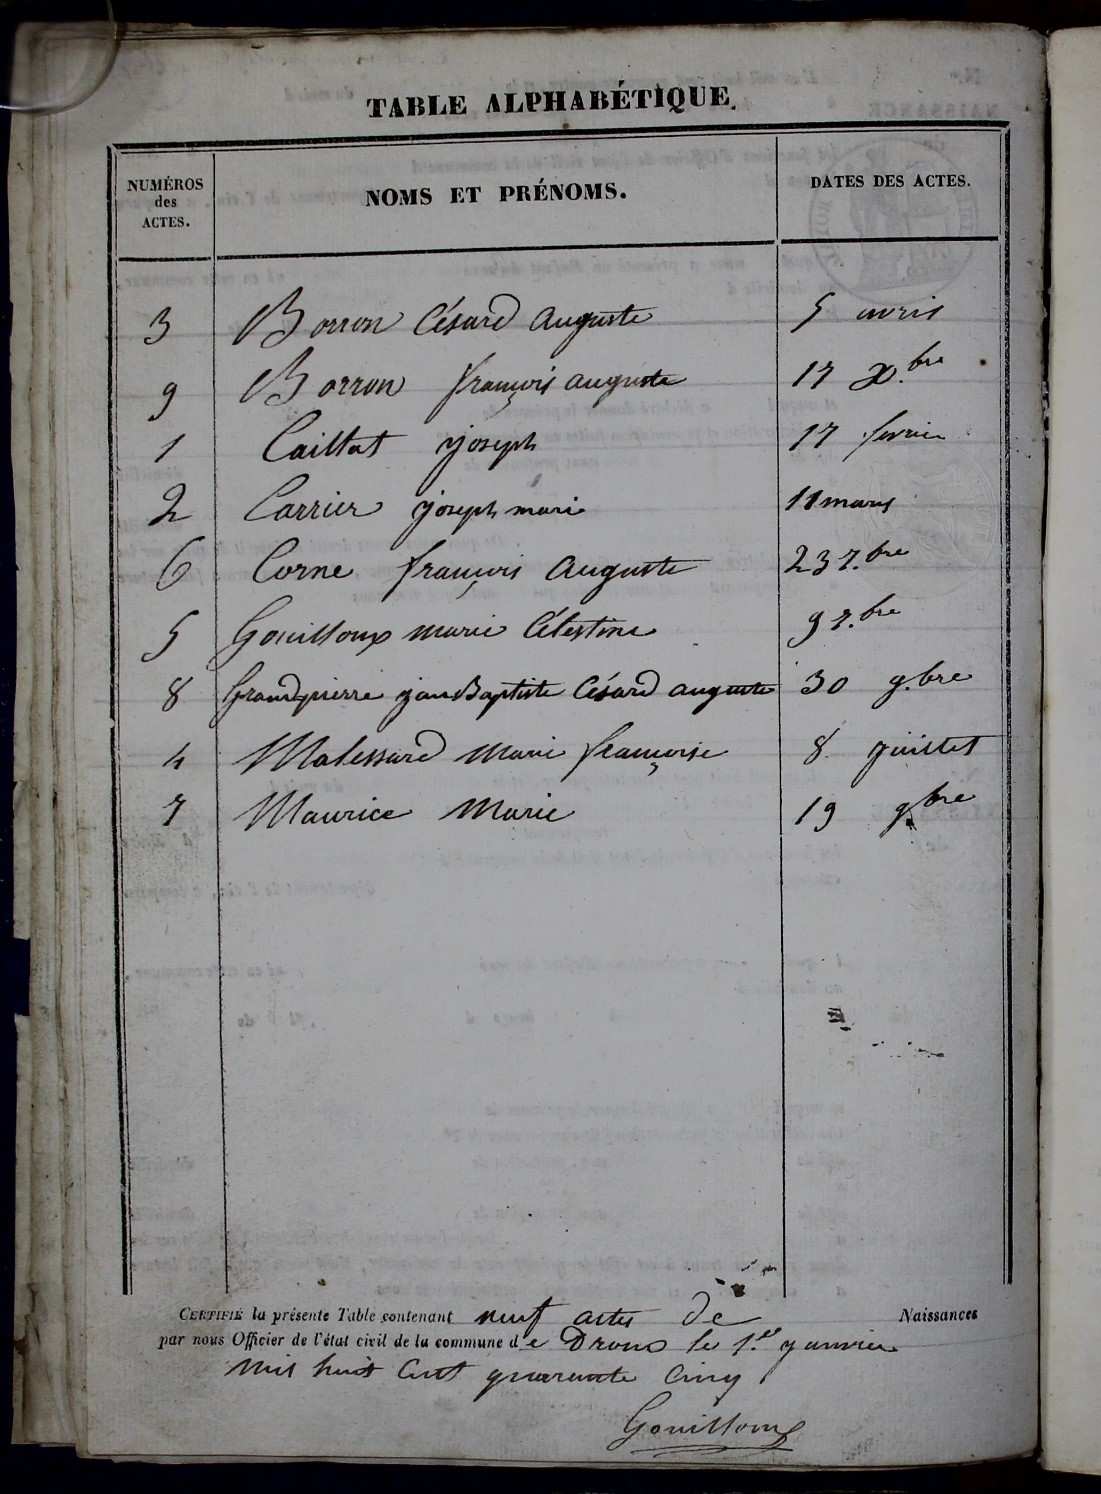 TABLE ALPHABÉTIQUE.
NUMÉROS des ACTES. NOMS ET PRÉNOMS. DATES DES ACTES.
3 Borron Césard auguste 5 avril
9 Borron françois auguste 17 Xbre
1 Caillat joseph 17 fevrier
2 Carrier joseph marie 11 mars
6 Corne françois auguste 23 7.bre
5 Gouilloux marie Célestine 9 7.bre
8 Grandpierre jean Baptiste Césard auguste 30 9.bre
4 Malessard marie françoise 8 juillet
7 Maurice Marie 19 9bre
CERTIFIÉ la présente Table contenant neuf actes de Naissances
par nous Officier de l'état civil de la commune de Drom le 1.er janvier
mil huit cent quarante cinq
Gouilloux